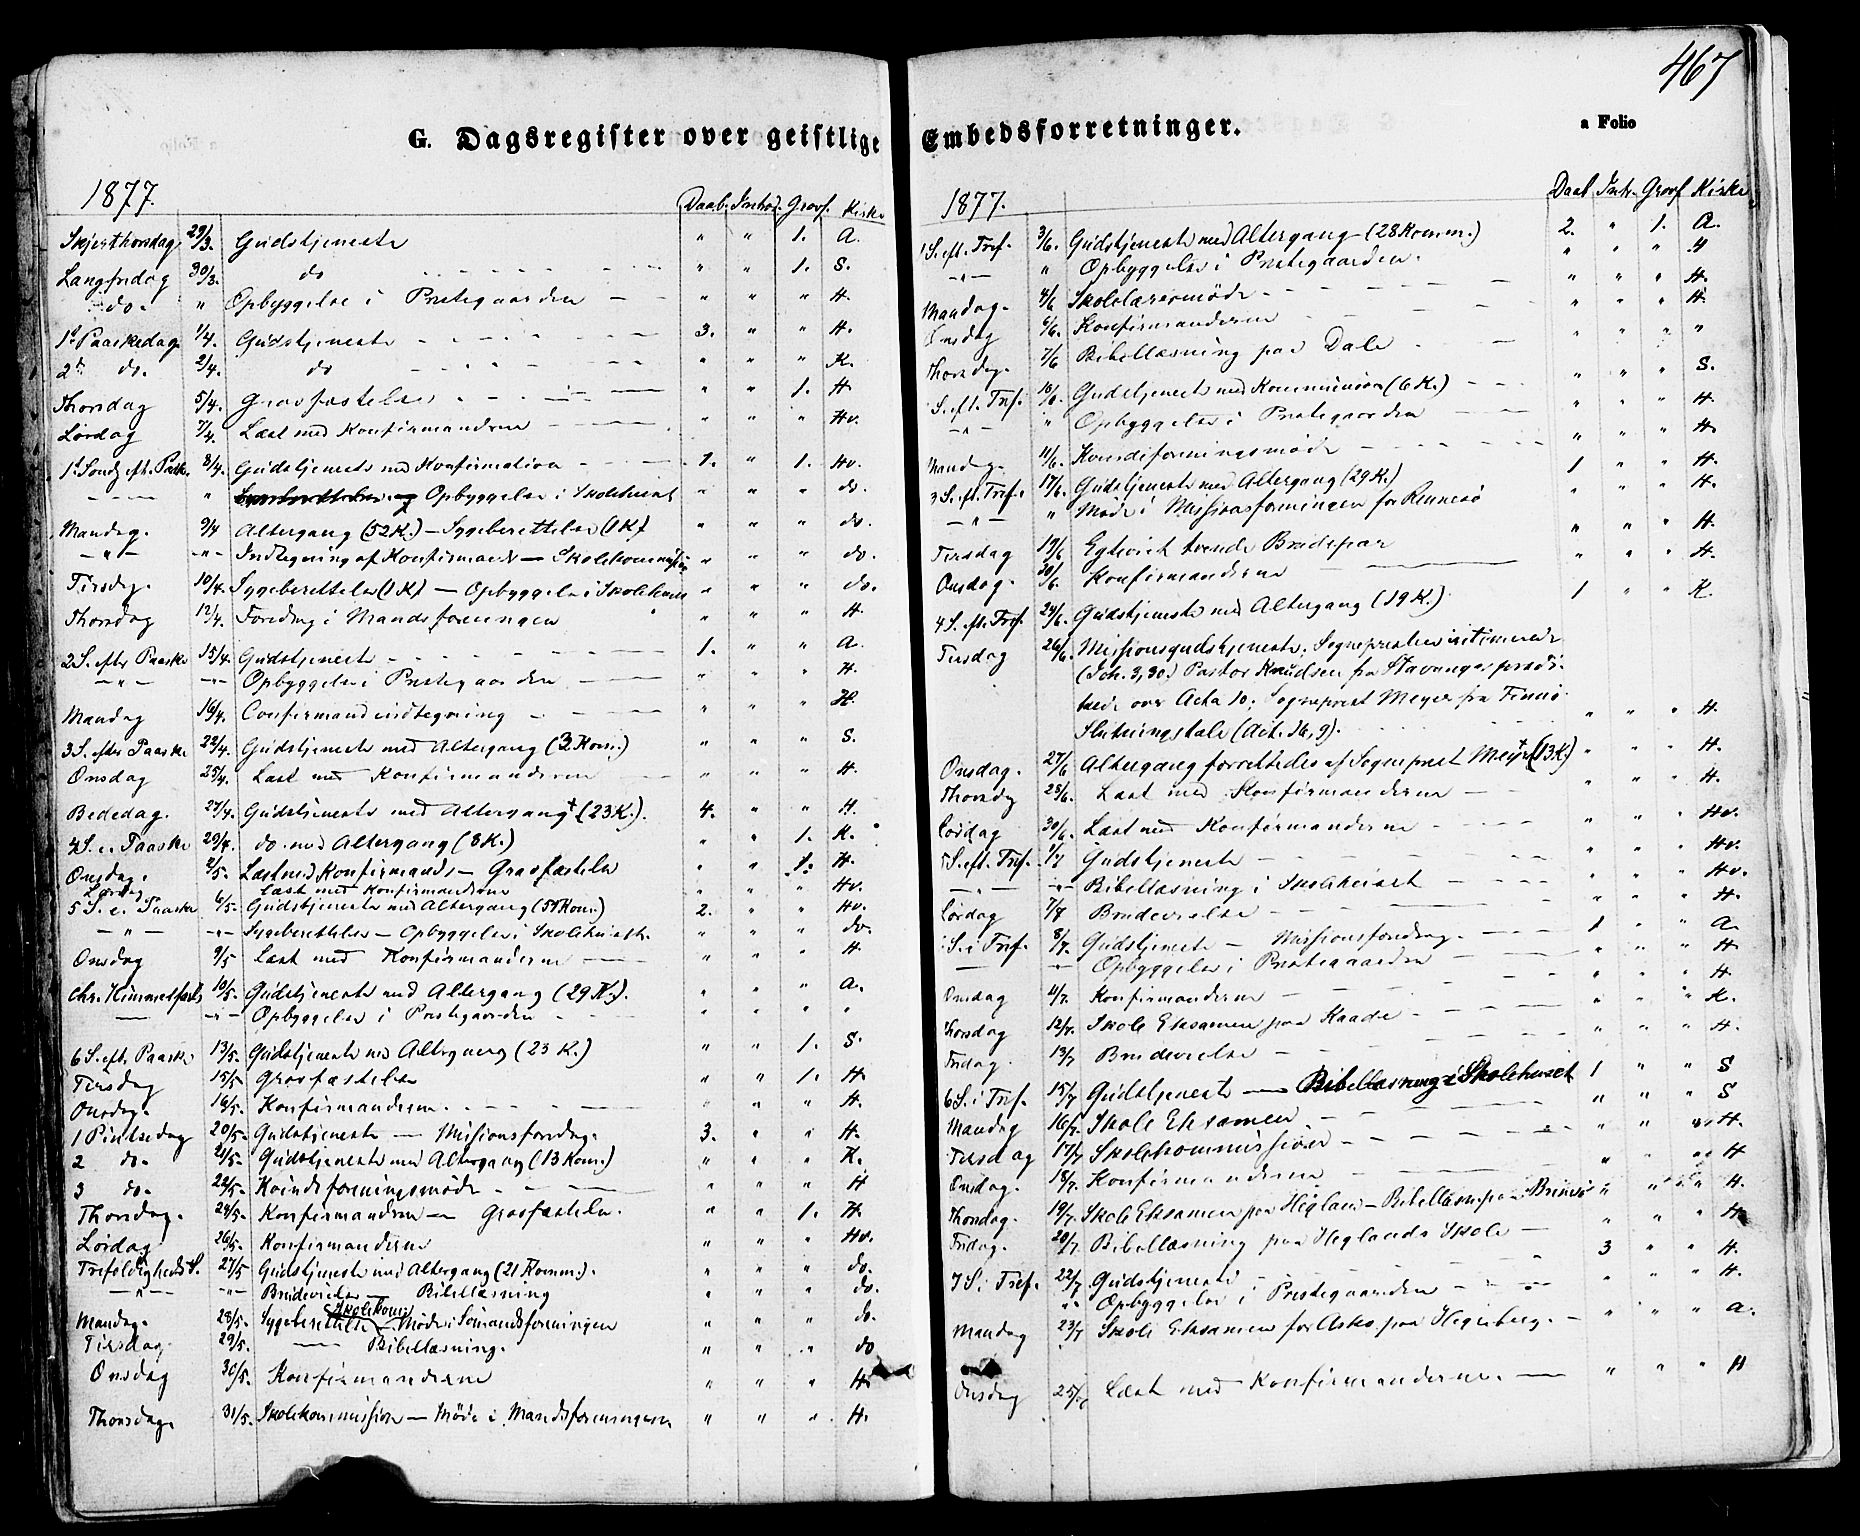 467
G. Dagsregister over geistlige Embedsforretninger.
a Folio
1877. Daab. Introd. Grovf. Kirke
Skjerthorsdag 29/3. Gudstjeneste " " 1. A.
Langfredag 30/3. do " " 1. S.
do. " Opbyggelse i Prestegaarden " " " H.
1ste Paaskedag 1/4. Gudstjeneste 3. " " H.
2de do. 2/4. do " " " K.
Thorsdag 5/4. Gravfæstelse " " 1. H
Lørdag 7/4. Læst med Konfirmanderne " " " Hv.
1ste Sondg eft. Paask. 8/4. Gudstjeneste med Konfirmation 1. " 1. Hv.
" Opbyggelse i Skolehuset " " " do.
Mandag. 9/4 Altergang (52 K.) – Sygeberettelse (1 K) " " " do.
– " – – " – Indtegning af Konfirmander – Skolekommission " " " do.
Tirsdag. 10/4. Sygeberettelse (1 K) – Opbyggelse i Skolehuset " " " do.
Thorsdag 12/4. Foredrag i Mandsforeningen " " " H
2 S. efter Paaske 15/4. Gudstjeneste 1. " " A.
– " – – " – Opbyggelse i Prestegaarden " " " H.
Mandag 16/4. Confirmandindtegning " " " H.
3 S. efter Paaske 22/4. Gudstjeneste med Altergang (3 Kom.) " " " S.
Onsdag 25/4. Læst med Konfirmanderne " " " H.
Bededag. 27/4. Gudstjeneste med Altergang + (23 K.). 4. " " H.
4 S. e. Paaske 29/4. do med Altergang (8 K.) " " 1. K.
Onsdag. 2/5. Læst med Konfirmands – Gravfæstelse " " 1. H.
Lørdag Læst med Konfirmanderne " " " Hv.
5 S. e. Paaske 6/5. Gudstjeneste med Altergang (51 Kom.) 2. " " Hv.
– " – – " – Sygeberettelse – Opbyggelse i Skolehuset. " " " do.
Onsdag 9/5 Læst med Konfirmanderne " " " H
Chr. Himmelfarts 10/5. Gudstjeneste med Altergang (29 K.). " " " A.
– – " – Opbyggelse i Prestegaarden " " " "
6 S. eft. Paaske 13/5. Gudstjeneste med Altergang (23 K.) " " 1. S.
Tirsdag 15/5 Gravfæstelse " " 1. H.
Onsdag. 16/5. Konfirmanderne " " " H.
1 Pintsedag 20/5. Gudstjeneste – Missionsforedrag. 3. " " H.
2 do. 21/5. Gudstjeneste med Altergang (13 Kom.) " " " K.
3 do. 22/5. Kvindeforeningsmøde " " " H
Thorsdag. 24/5. Konfirmandern – Gravfæstelse. " " 1. H.
Lørdag 26/5. Konfirmanderne " " " Hv.
Trefoldigheds S. 27/5 Gudstjeneste med Altergang (21 Komm.). " " " do.
– " – – " – Brudevielse – Bibellæsning " " " do.
Mandag. 28/5. Sygeberettelse – Skolekom. Møde i Sømandsforeningen " " " do.
Tirsdag. 29/5. – Bibellæsning. " " " do
Onsdag 30/5. Konfirmanderne " " " H.
Thorsdag. 31/5. Skolekommission – Møde i Mandsforeningen " " " H.
1877. Daab Intr. Grovf Kirke
1 S. eft. Tref. 3/6. Gudstjeneste med Altergang – (28 Komm.) 2. " 1. A.
– " – " Opbyggelse i Prestegaarden. " " " H
Mandag. 4/6 Skolelærermøde " " " H.
Onsdag 6/6. Konfirmanderne " " " H.
Thorsdag. 7/6 Bibellæsning paa Dale " " " "
S. eft. Tref. 10/6. Gudstjeneste med Kommunion (6 K.) " " " S.
– " – " Opbyggelse i Prestegaarden " " " H.
Mandag. 11/6. Kvindeforeningsmøde " " " H.
3 S. eft. Tref. 17/6. Gudstjeneste med Altergang (29 K.) 1 " " H.
– " – " Møde i Missionsforeningen for Rennesø " " " H.
Tirsdag 19/6 Egteviet tvende Brudepar " " " H.
Onsdag. 20/6. Konfirmanderne " " " H.
4 S. eft. Tref. 24/6. Gudstjeneste med Altergang (19 K.) 1 " " K.
Tirsdag 26/6. Missionsgudstjeneste. Sognepresten intimerede
(Joh. 3,30.) Pastor Knudsen fra Stavanger prædi-
kede over Acta 10; Sogneprest Meyer fra Finnø
Slutningstale (Act. 16, 9). " " " H.
Onsdag. 27/6 Altergang forrettedes af Sogneprest Meyer (13 K) " " " H.
Thorsdg 28/6. Læst med Konfirmanderne " " " H.
Lørdag 30/6. Læst med Konfirmanderne " " " Hv.
5 S. eft. Tref. 1/7 Gudstjeneste " " " Hv.
– " – – " – Bibellæsning i Skolehuset " " " Hv.
Lørdag 7/7 Brudevielse " " " H.
S. i Tref. 8/7. Gudstjeneste – Missionsforedrag. 1 " " A.
– – " – Opbyggelse i Prestegaarden " " " H
Onsdag 11/7. Konfirmanderne " " " H.
Thorsdag 12/7. Skole Eksamen paa Raade " " " K.
Fredag 13/7 Brudevielse " " " H.
6 S. i Tref. 15/7 Gudstjeneste – Bibellæsning i Skolehuset 1 " " S
Mandag 16/7. Skole Eksamen " " " S
Tirsdag 17/7 Skolekommission " " " H.
Onsdag. 18/7. Konfirmanderne " " " H
Thorsdag. 19/7. Skole Eksamen paa Hegland – Bibellæsn. paa " " " H.
Fredag. 20/7. Bibellæsning paa Heglands Skole " " " H
7 S. i Tref. 22/7 Gudstjeneste 3 " " H.
" Opbyggelse i Prestegaarden " " " H.
Mandag 23/7 Skole Eksamen for Askø paa " " " A.
Onsdag 25/7 Læst med Konfirmanderne. " " " H